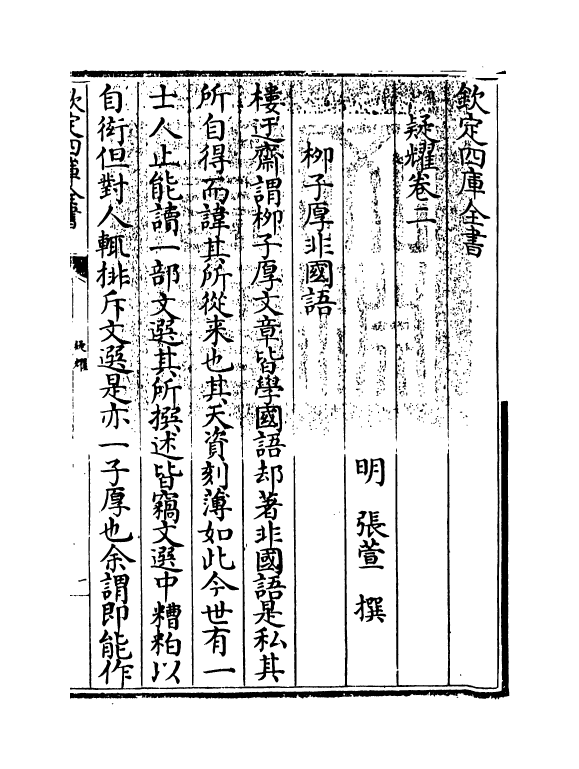 欽定四庫全書
疑耀卷二
明 張萱 撰
柳子厚非國語
樓迂齋謂柳子厚文章皆學國語却著非國語是私其
所自得而諱其所從来也其天資刻薄如此今世有一
士人止能讀一部文選其所撰述皆竊文選中糟粕以
自衒但對人輒排斥文選是亦一子厚也余謂即能作
欽定四庫全書
疑耀
一